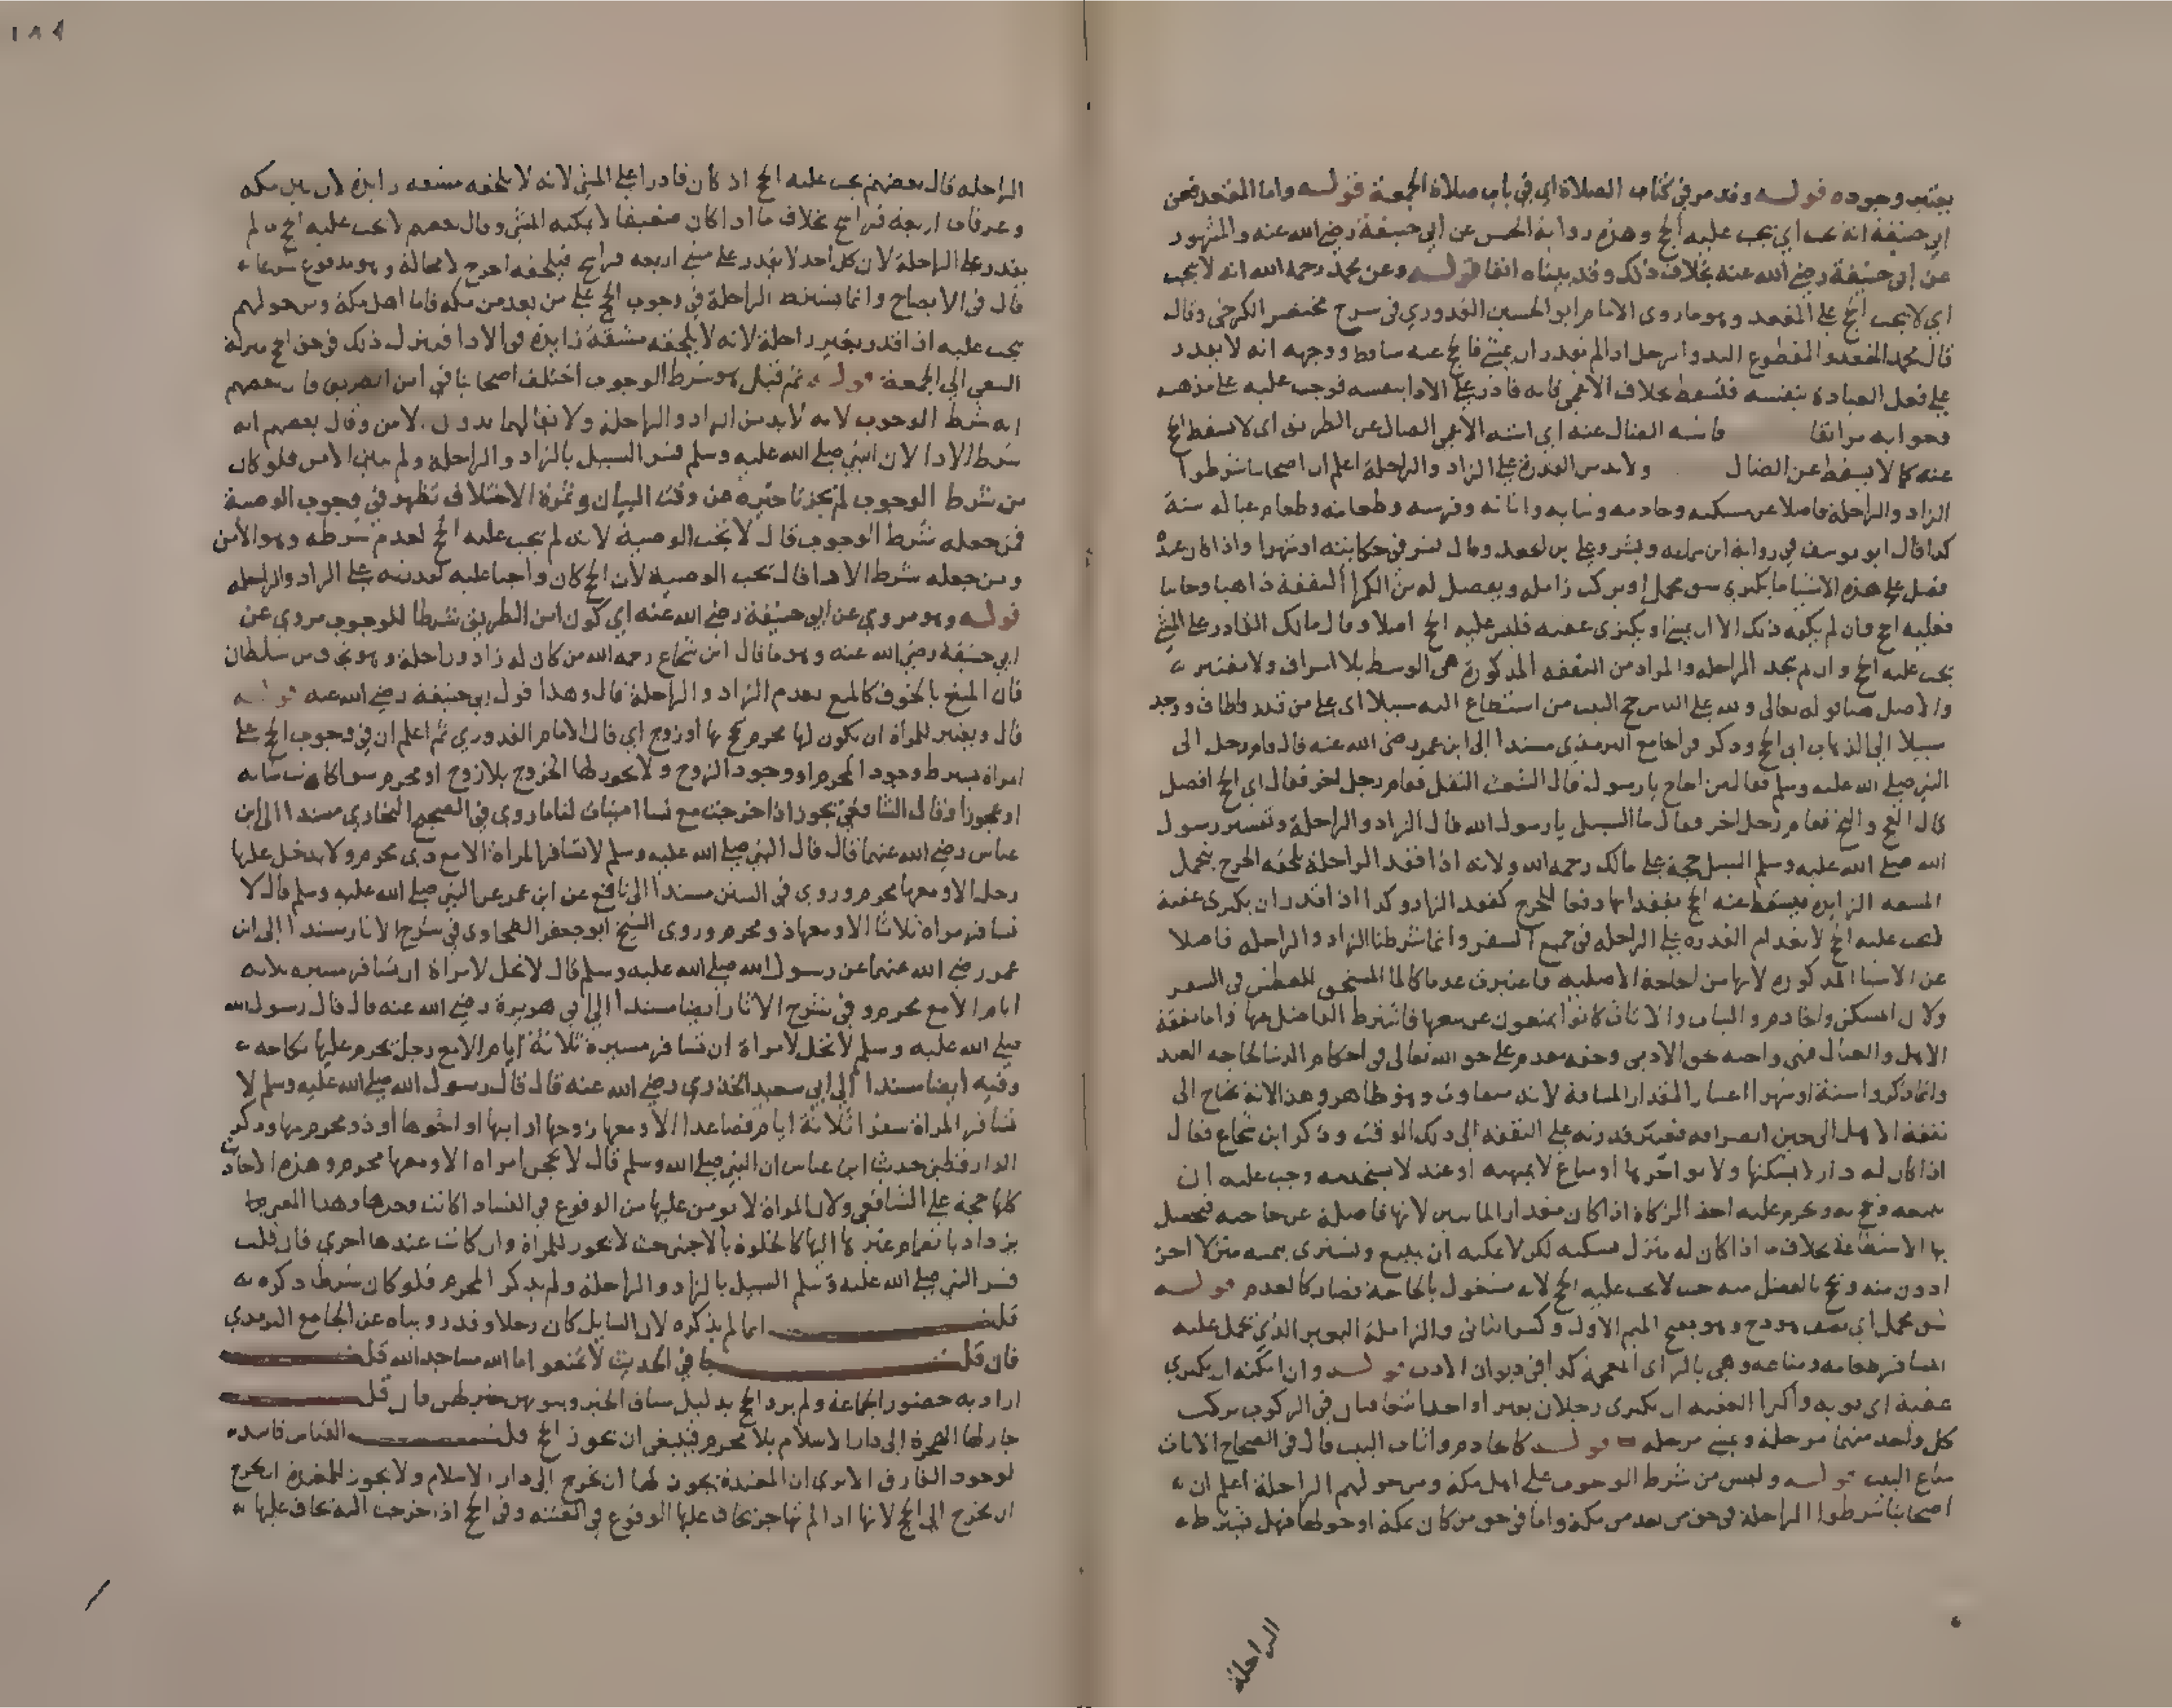 يعتبر وجوده قوله وقد مر في كتاب الصلاة اي في باب صلاة الجمعة قوله واما المقعد فعن
ابي حنيفة انه يجب اي يجب عليه الحج وهذه رواية الحسن عن ابي حنيفة رضي الله عنه والمشهور
عن ابي حنيفة رضي الله عنه بخلاف ذلك وقد بيناه انفا قوله وعن محمد رحمه الله انه لا يجب
اي لا يجب الحج على المقعد وهو ما روى الامام ابو الحسين القدوري في شرح مختصر الكرخي وقال
قال محمد المقعد والمقطوع اليد والرجل اذا لم يقدر ان يمشي فالحج عنه ساقط ووجهه انه لا يقدر
على فعل العبادة بنفسه فتسقط بخلاف الاعمى فانه قادر على الادا بنفسه فوجب عليه على مذهبه
وجوابه مر انفا فاشبه الضال عنه اي اشبه الاعمى الضال عن الطريق اي لا يسقط الحج
عنه كما لا يسقط عن الضال ولا بد من القدرة على الزاد والراحلة اعلم ان اصحابنا شرطوا
الزاد والراحلة فاضلا عن مسكنه وخادمه وثيابه واثاثه وفرسه وطعامه وطعام عياله سنة
كذا قال ابو يوسف في رواية ابن سماعه وبشر وعلي بن الجعد وقال بشر في حكايته او شهرا واذا كان عنده
فضل على هذه الاشيا ما يكتري شق محمل او يركب زامله ويفضل له من الكرا النفقة ذاهبا وجائيا
فعليه الحج وان لم يكفه ذلك الا ان يمشي او يكتري عقبه فليس عليه الحج اصلا وقال مالك القادر على المشي
يجب عليه الحج وان لم يجد الراحله والمراد من النفقه المذكورة هي الوسط بلا اسراف ولا تقتير
والاصل هنا قوله تعالى ولله على الناس حج البيت من استطاع اليه سبيلا اي على من قدر واطاق ووجد
سبيلا الى الذهاب الى الحج وذكر في جامع الترمذي مسندا الى ابن عمر رضي الله عنه قال قام رجل الى
النبي صلى الله عليه وسلم فقال من الحاج يا رسول الله قال الشعث التفل فقام رجل اخر فقال اي الحج افضل
قال العج والثج فقام رجل اخر فقال ما السبيل يا رسول الله قال الزاد والراحلة وتفسير رسول
الله صلى الله عليه وسلم السبيل حجة على مالك رحمه الله ولانه اذا فقد الراحلة تلحقه الحرج بتحمل
المشقه الزايده فيسقط عنه الحج بفقدانها دفعا للحرج كفقد الزاد وكذا اذا قدر ان يكتري عقبة
لا يجب عليه الحج لانعدام القدره على الراحله في جميع السفر وانما شرطنا الزاد والراحله فاضلا
عن الاشيا المذكوره لانها من الحاجة الاصليه فاعتبرت عدما كالما المستحق للعطش في السفر
ولان المسكن والخادم والثياب والاثاث كانوا يمنعون عن بيعها فاشترط الفاضل عنها واما نفقة
الاهل والعيال فهي واجبه حق الادمي وحقه مقدم على حق الله تعالى في احكام الدنيا لحاجه العبد
وانما ذكروا سنة او شهرا اعتبارا لمقدار المسافة لانه يتفاوت وهو ظاهر وهذا لانه يحتاج الى
نفقة الاهل الى حين انصرافه فتعتبر قدرته على النفقه الى ذلك الوقت وذكر ابن شجاع فقال
اذا كان له دار لا يسكنها ولا يواجرها او متاع لا يمتهنه او عبد لا يستخدمه وجب عليه ان
يبيعه ويحج به وحرم عليه اخذ الزكاة اذا كان مقدار المائتين لانها فاضلة عن حاجته فتحصل
بها الاستطاعة بخلاف ما اذا كان له منزل يسكنه لكن لا يمكنه ان يبيع ويشتري بثمنه منزلا اخر
ادون منه ويحج بالفضل منه حيث لا يجب عليه الحج لانه مشغول بالحاجة فصار كالعدم قوله
شق محمل اي نصف هودج وهو بفتح الميم الاول وكسر الثاني والزاملة البعير الذي يحمل عليه
المسافر طعامه ومتاعه وهي بالزاي المعجمة كذا في ديوان الادب قوله وان امكنه ان يكتري
عقبة اي نوبه واكترا العقبه ان يكتري رجلان بعيرا واحدا يتعاقبان في الركوب يركب
كل واحد منهما مرحلة ويمشي مرحله قوله كالخادم واثاث البيت قال في الصحاح الاثاث
متاع البيت قوله وليس من شرط الوجوب على اهل مكة ومن حولهم الراحلة اعلم ان
اصحابنا شرطوا الراحلة في حق من بعد من مكة واما في حق من كان بمكة او حولها فهل تشترط
الراحلة
١٨٩
الراحله قال بعضهم يجب عليه الحج اذا كان قادرا على المشي لانه لا تلحقه مشقه زايدة لان بين مكه
وعرفات اربعة فراسخ بخلاف ما اذا كان ضعيفا لا يمكنه المشي وقال بعضهم لا يجب عليه الحج ما لم
يقدر على الراحلة لان كل احد لا يقدر على مشي اربعه فراسخ فيلحقه الحرج لا محالة وهو مدفوع شرعا
قال في الايضاح وانما يشترط الراحلة في وجوب الحج على من بعد من مكه فاما اهل مكة ومن حولهم
يجب عليه اذا قدر بغير راحلة لانه لا يلحقه مشقة زايدة في الادا فنزل ذلك في حق الحج منزلة
السعي الى الجمعة قوله ثم قيل هو شرط الوجوب اختلف اصحابنا في امن الطريق قال بعضهم
انه شرط الوجوب لانه لا بد من الزاد والراحلة ولا بقا لهما بدون الامن وقال بعضهم انه
شرط الادا لان النبي صلى الله عليه وسلم فسر السبيل بالزاد والراحلة ولم يبين الامن فلو كان
من شرط الوجوب لم يجز تاخيره عن وقت البيان وثمرة الاختلاف تظهر في وجوب الوصية
فمن جعله شرط الوجوب قال لا تجب الوصية لانه لم يجب عليه الحج لعدم شرطه وهو الامن
ومن جعله شرط الادا قال تجب الوصية لان الحج كان واجبا عليه لقدرته على الزاد والراحله
قوله وهو مروي عن ابي حنيفة رضي الله عنه اي كون امن الطريق شرطا للوجوب مروي عن
ابي حنيفة رضي الله عنه وهو ما قال ابن شجاع رحمه الله من كان له زاد وراحلة وهو يخاف من سلطان
قال المنع بالخوف كالمنع بعدم الزاد والراحلة قال وهذا قول ابي حنيفة رضي الله عنه قوله
قال ويعتبر للمرأة ان يكون لها محرم تحج بها او زوج اي قال الامام القدوري ثم اعلم ان في وجوب الحج على
امراة يشترط وجود المحرم او وجود الزوج ولا يجوز لها الخروج بلا زوج او محرم سوا كانت شابه
او عجوزا وقال الشافعي يجوز اذا خرجت مع نسا امينات لنا ما روي في الصحيح البخاري مسندا الى ابن
عباس رضي الله عنهما قال قال النبي صلى الله عليه وسلم لا تسافر المراة الا مع ذي محرم ولا يدخل عليها
رجل الا ومعها محرم وروي في السنن مسندا الى نافع عن ابن عمر عن النبي صلى الله عليه وسلم قال لا
تسافر مراة ثلاثا الا ومعها ذو محرم وروى الشيخ ابو جعفر الطحاوي في شرح الاثار مسندا الى ابن
عمر رضي الله عنهما عن رسول الله صلى الله عليه وسلم قال لا تحل لامراة ان تسافر مسيره ثلاثه
ايام الا مع محرم وفي شرح الاثار ايضا مسندا الى ابي هريرة رضي الله عنه قال قال رسول الله
صلى الله عليه وسلم لا تحل لامراة ان تسافر مسيرة ثلاثة ايام الا مع رجل يحرم عليها نكاحه
وفيه ايضا مسندا الى ابي سعيد الخدري رضي الله عنه قال قال رسول الله صلى الله عليه وسلم لا
تسافر المراة سفرا ثلاثة ايام فصاعدا الا ومعها زوجها او ابنها او اخوها او ذو محرم منها وذكر
الدارقطني حديث ابن عباس ان النبي صلى الله وسلم قال لا تحجن امراه الا ومعها محرم وهذه الاحاديث
كلها حجة على الشافعي ولان المراة لا يومن عليها من الوقوع في الفساد اذا كانت وحدها وهذا المعنى
يزداد بانضمام غيرها اليها كالخلوة بالاجنبي حيث لا يجوز للمراة وان كانت عندها اخرى فان قلت
فسر النبي صلى الله عليه وسلم السبيل بالزاد والراحلة ولم يذكر المحرم فلو كان شرطا ذكره
قلت انما لم يذكره لان السايل كان رجلا وقد رويناه عن الجامع الترمذي
فان قلت جا في الحديث لا تمنعوا اما الله مساجد الله قلت
اراد به حضور الجماعة ولم يرد الحج بدليل سياق الخبر وبيوتهن خير لهن فان قلت
جاز لها الهجرة الى دار الاسلام بلا محرم فينبغي ان يجوز الحج قلت القياس فاسد
لوجود الفارق الا يرى ان المعتدة يجوز لها ان تخرج الى دار الاسلام ولا يجوز للمعتدة
ان تخرج الى الحج لانها اذا لم تهاجر يخاف عليها الوقوع في الفتنه وفي الحج اذا خرجت اليه يخاف عليها